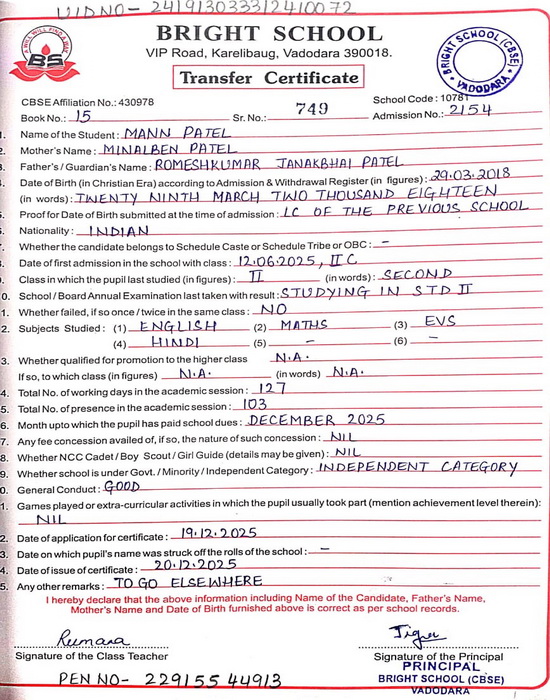 UID NO- 241913033312410072
A WILL WILL FIND A WAY
BS
BRIGHT SCHOOL
VIP Road, Karelibaug, Vadodara 390018.
Transfer Certificate
BRIGHT SCHOOL (CBSE)
VADODARA
CBSE Affiliation No.: 430978
School Code : 10781
Book No.: 15 Sr. No.: 749 Admission No.: 2154
1. Name of the Student: MANN PATEL
2. Mother's Name : MINALBEN PATEL
3. Father's / Guardian's Name : ROMESHKUMAR JANAKBHAI PATEL
4. Date of Birth (in Christian Era) according to Admission & Withdrawal Register (in figures) : 29.03.2018
(in words) : TWENTY NINTH MARCH TWO THOUSAND EIGHTEEN
5. Proof for Date of Birth submitted at the time of admission : LC OF THE PREVIOUS SCHOOL
6. Nationality : INDIAN
7. Whether the candidate belongs to Schedule Caste or Schedule Tribe or OBC : -
8. Date of first admission in the school with class : 12.06.2025, II C
9. Class in which the pupil last studied (in figures) : II (in words) : SECOND
0. School / Board Annual Examination last taken with result : STUDYING IN STD II
1. Whether failed, if so once / twice in the same class : NO
2. Subjects Studied : (1) ENGLISH (2) MATHS (3) EVS
(4) HINDI (5) - (6) -
3. Whether qualified for promotion to the higher class N.A.
If so, to which class (in figures) N.A. (in words) N.A.
4. Total No. of working days in the academic session : 127
5. Total No. of presence in the academic session : 103
6. Month upto which the pupil has paid school dues : DECEMBER 2025
7. Any fee concession availed of, if so, the nature of such concession : NIL
8. Whether NCC Cadet / Boy Scout / Girl Guide (details may be given) : NIL
9. Whether school is under Govt. / Minority / Independent Category : INDEPENDENT CATEGORY
0. General Conduct : GOOD
1. Games played or extra-curricular activities in which the pupil usually took part (mention achievement level therein):
NIL
2. Date of application for certificate : 19.12.2025
3. Date on which pupil's name was struck off the rolls of the school : -
4. Date of issue of certificate : 20.12.2025
5. Any other remarks : TO GO ELSEWHERE
I hereby declare that the above information including Name of the Candidate, Father's Name,
Mother's Name and Date of Birth furnished above is correct as per school records.
Signature of the Class Teacher
Signature of the Principal
PRINCIPAL
BRIGHT SCHOOL (CBSE)
VADODARA
PEN NO- 22915544913